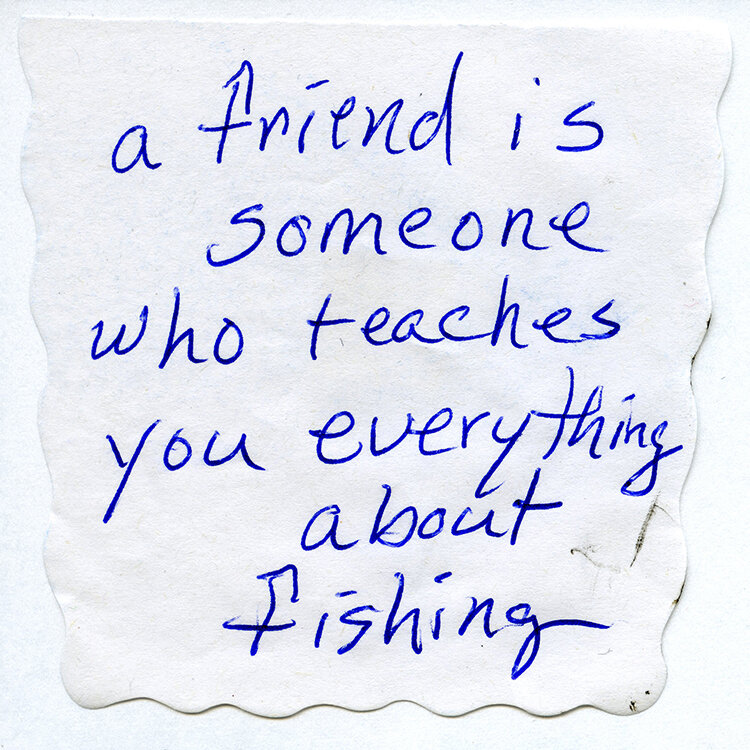 a friend is
someone
who teaches
you everything
about
fishing